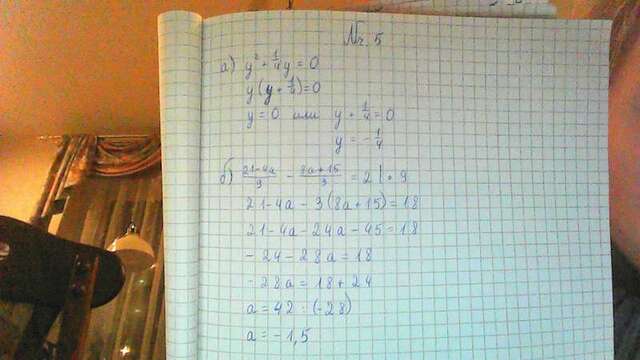 № 5
а) y² + 1/4 y = 0
y(y + 1/4) = 0
y = 0 или y + 1/4 = 0
y = -1/4
б) 21-4a/9 - 8a+15/3 = 2 | · 9
21-4a - 3(8a+15) = 18
21-4a-24a-45 = 18
-24-28a = 18
-28a = 18+24
a = 42 : (-28)
a = -1,5